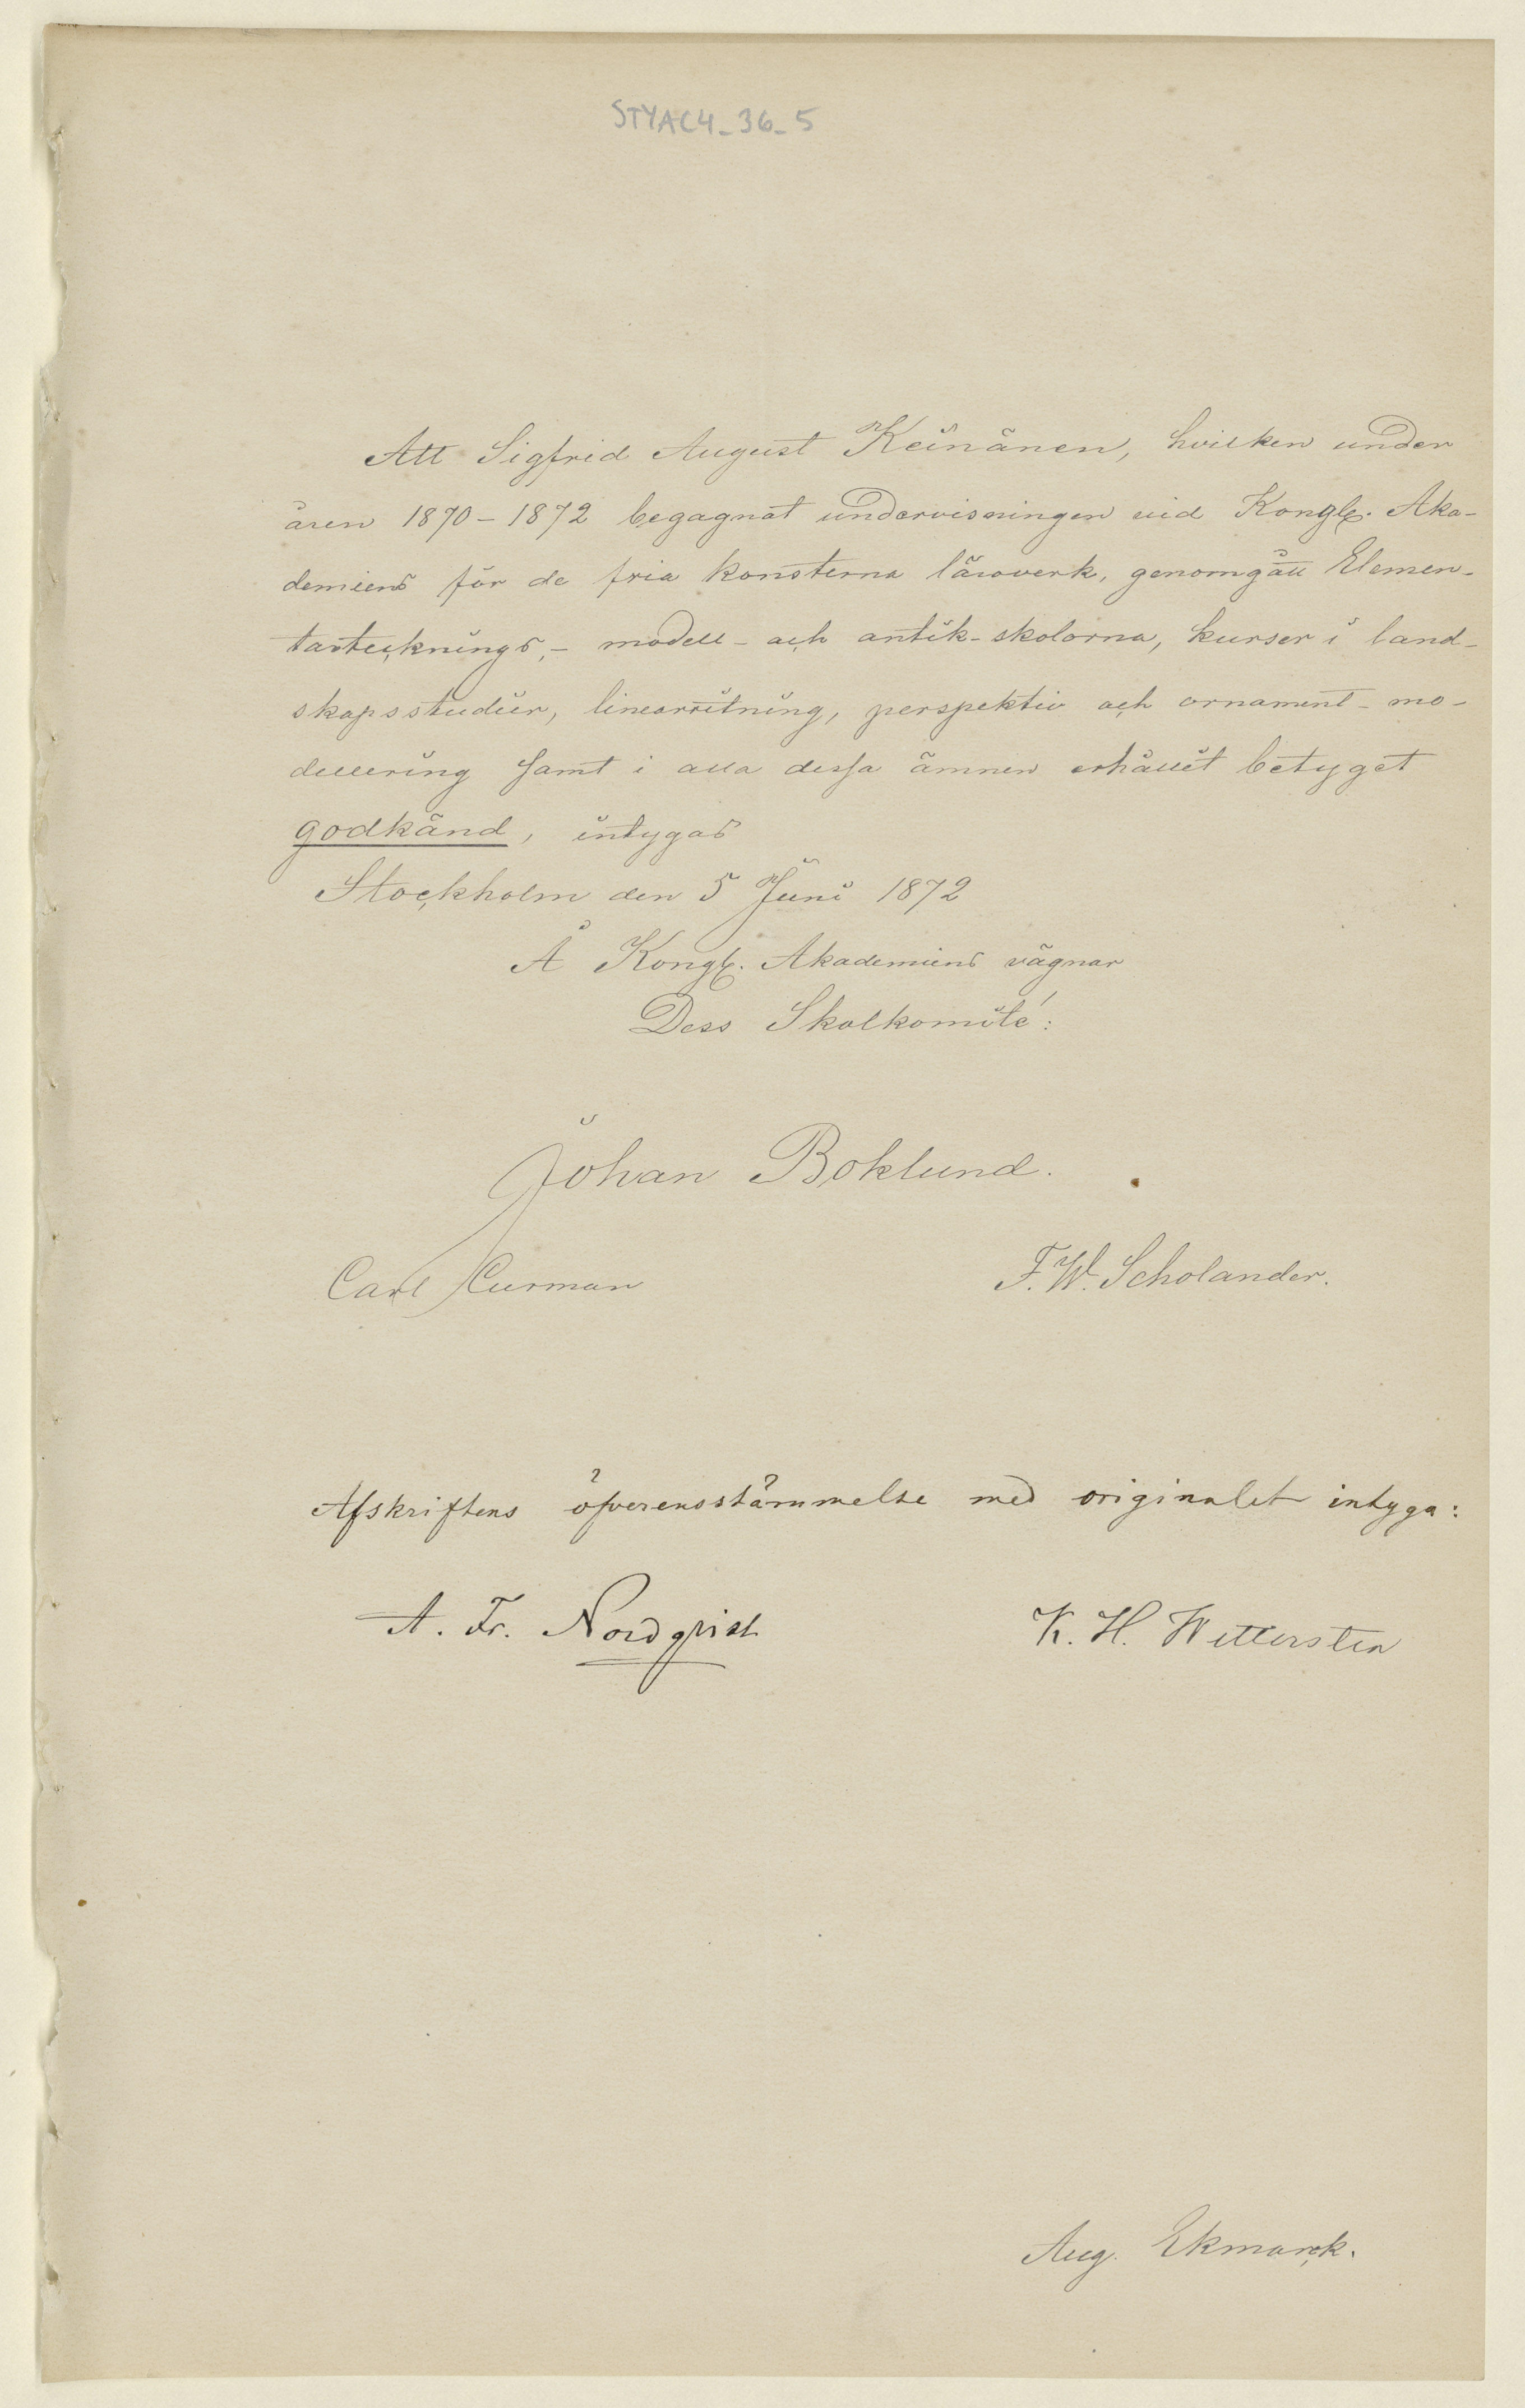 STYAC4_36_5
Att Sigfrid August Keinänen, hvilken under
åren 1870-1872 begagnat undervisningen vid Kongl. Aka-
demiens för de fria konsterna läroverk, genomgått Elemen-
tartecknings,- modell- och antik-skolorna, kurser i land-
skapsstudier, linearritning, perspektiv och ornament-mo-
dellering samt i alla dessa ämnen erhållit betyget
godkänd, intygas
Stockholm den 5 Juni 1872
Å Kongl. Akademiens vägnar
Dess Skolkomité:
Johan Boklund.
Carl Curman F. W. Scholander.
Afskriftens öfverensstämmelse med originalet intyga:
A. Fr. Nordqvist K. H. Wettersten
Aug. Ekmarck.